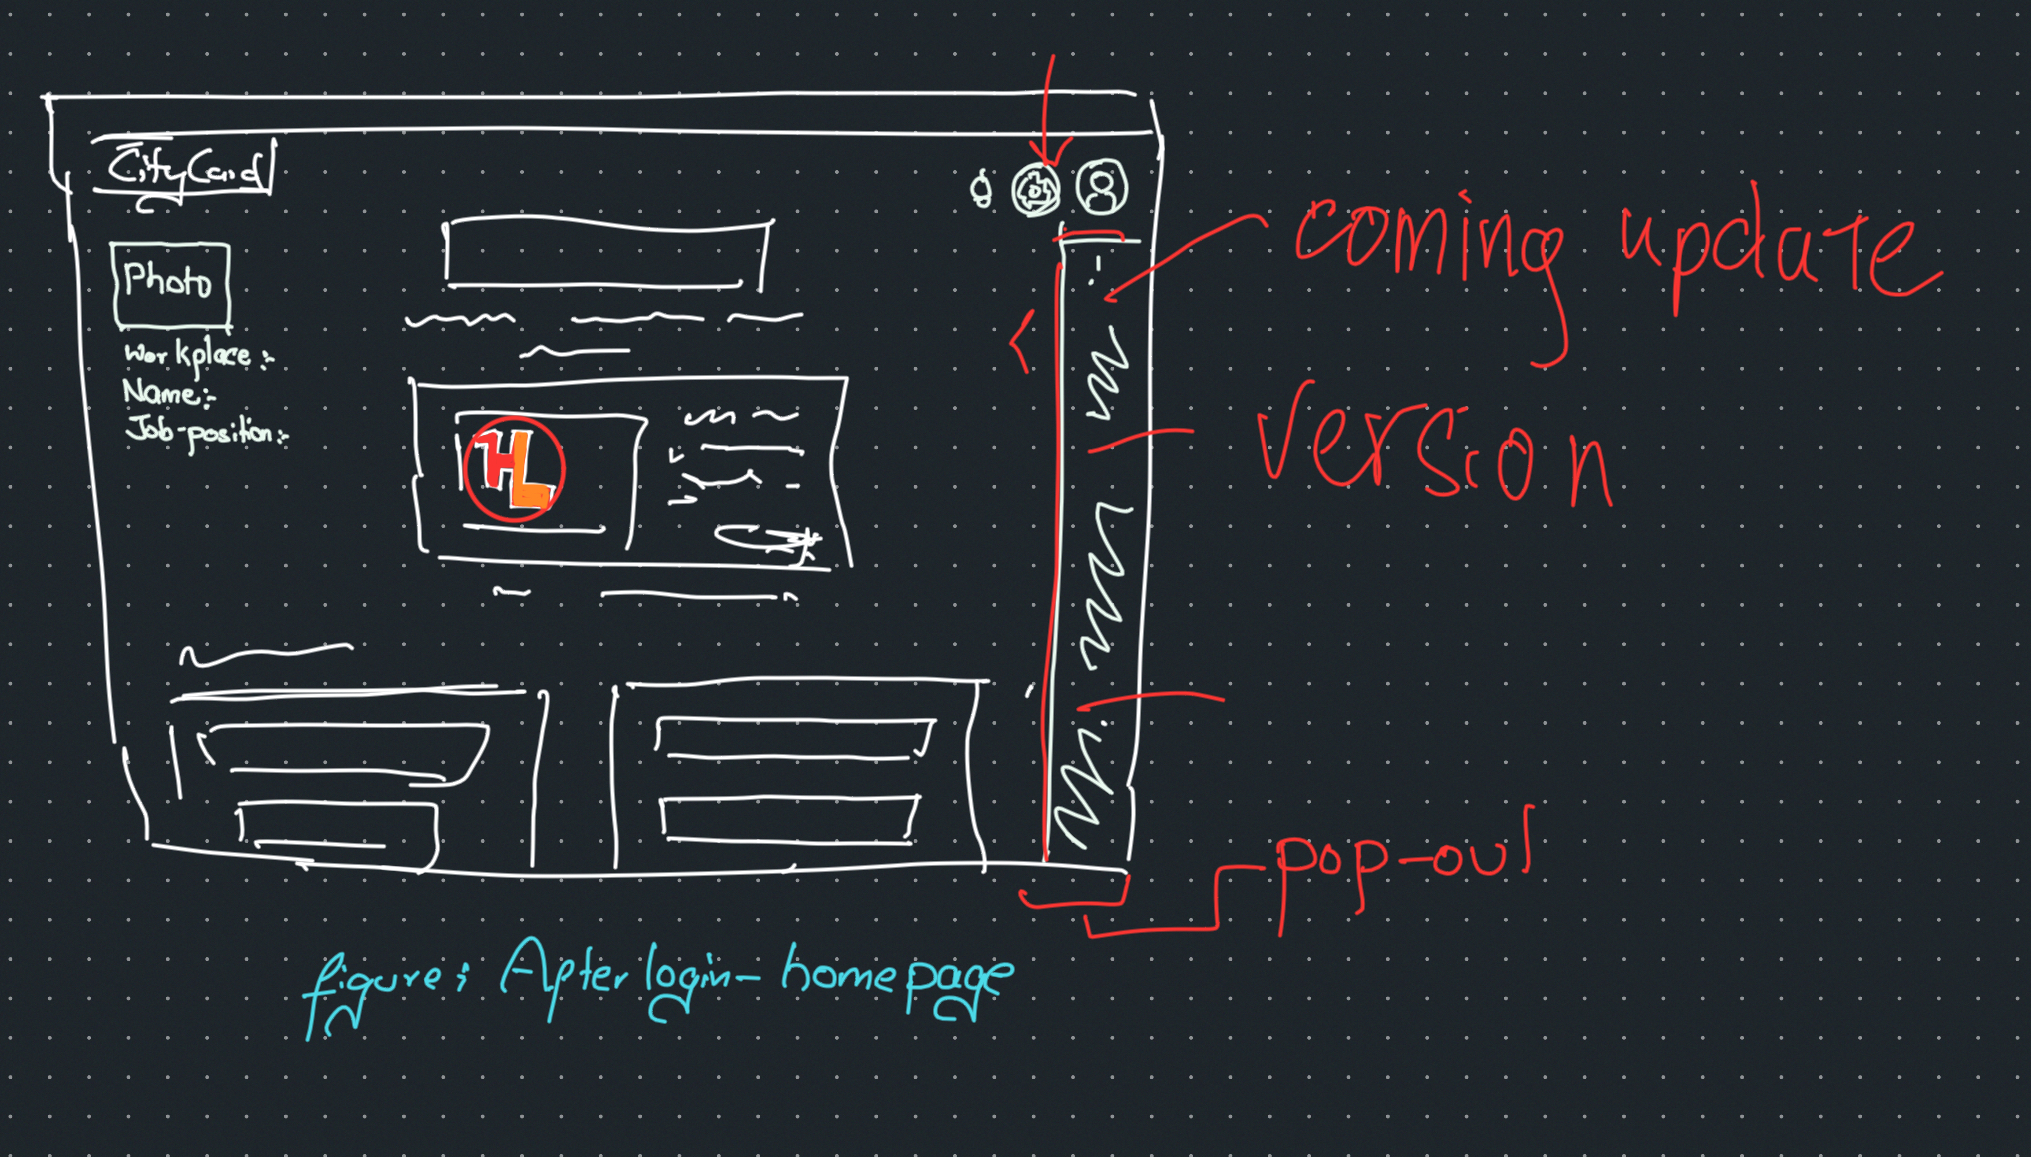 CityCard
Photo
Workplace:-
Name:-
Job-position:-
HL
coming update
version
pop-out
figure: After login- home page